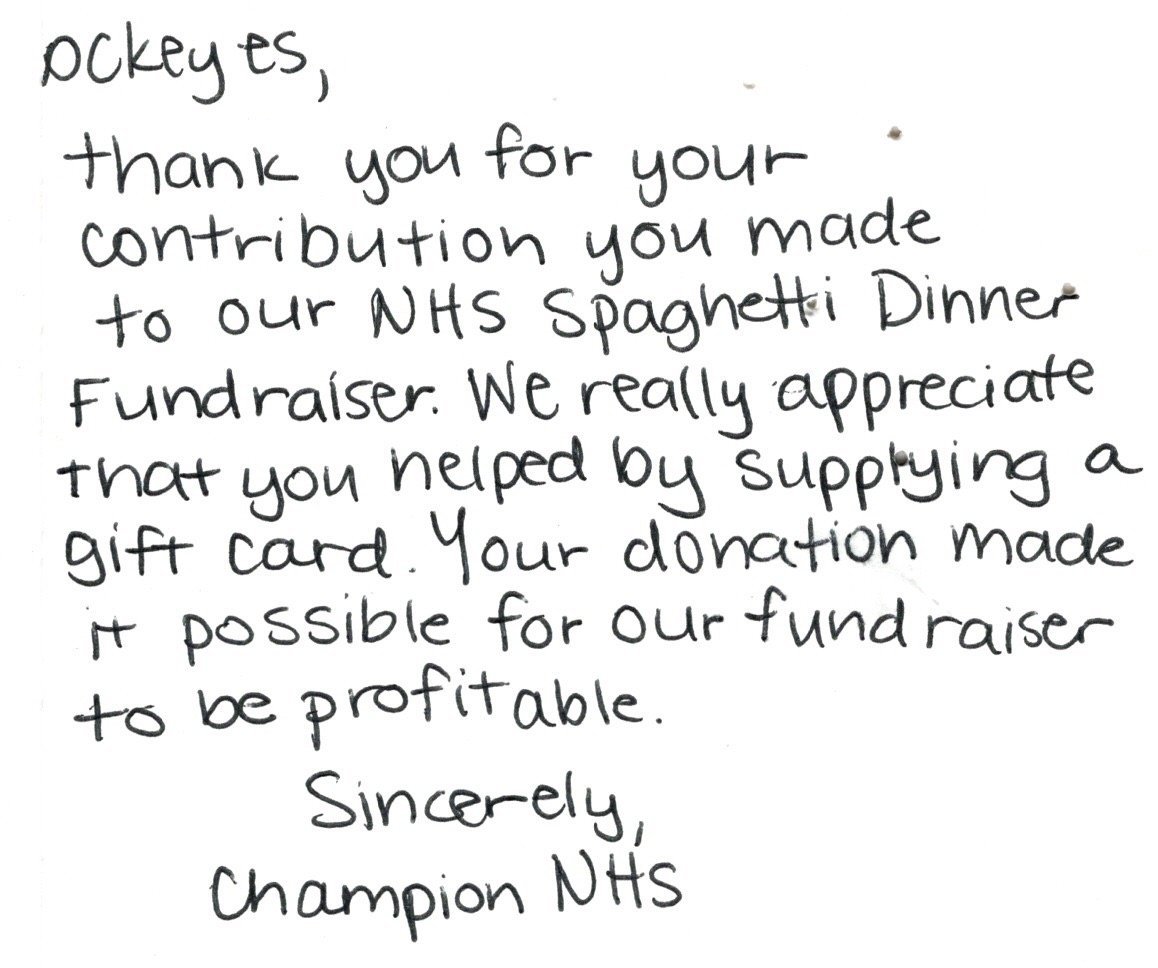 ockeyes,
thank you for your
contribution you made
to our NHS Spaghetti Dinner
Fundraiser. We really appreciate
that you helped by supplying a
gift card. Your donation made
it possible for our fundraiser
to be profitable.
Sincerely,
Champion NHS